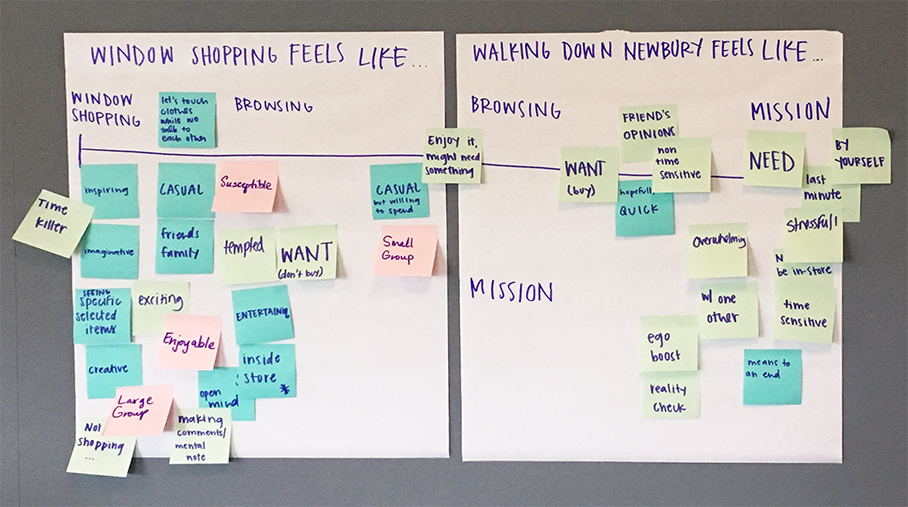 WINDOW SHOPPING FEELS LIKE...
WINDOW
SHOPPING
let's touch
clothes
while we
talk to
each other
BROWSING
Enjoy it,
might need
something
Time
Killer
inspiring
CASUAL
Susceptible
CASUAL
but willing
to spend
imaginative
friends
family
tempted
WANT
(don't buy)
Small
Group
SEEING
specific
selected
items
exciting
ENTERTAINING
Enjoyable
creative
inside
store
open
mind
Large
Group
Not
shopping
...
making
comments/
mental
note
WALKING DOWN NEWBURY FEELS LIKE...
BROWSING
MISSION
FRIEND'S
OPINIONS
WANT
(buy)
non
time
sensitive
NEED
BY
YOURSELF
hopefully
QUICK
last
minute
Overwhelming
Stressful
be in-store
MISSION
w/ one
other
time
sensitive
ego
boost
means to
an end
reality
check